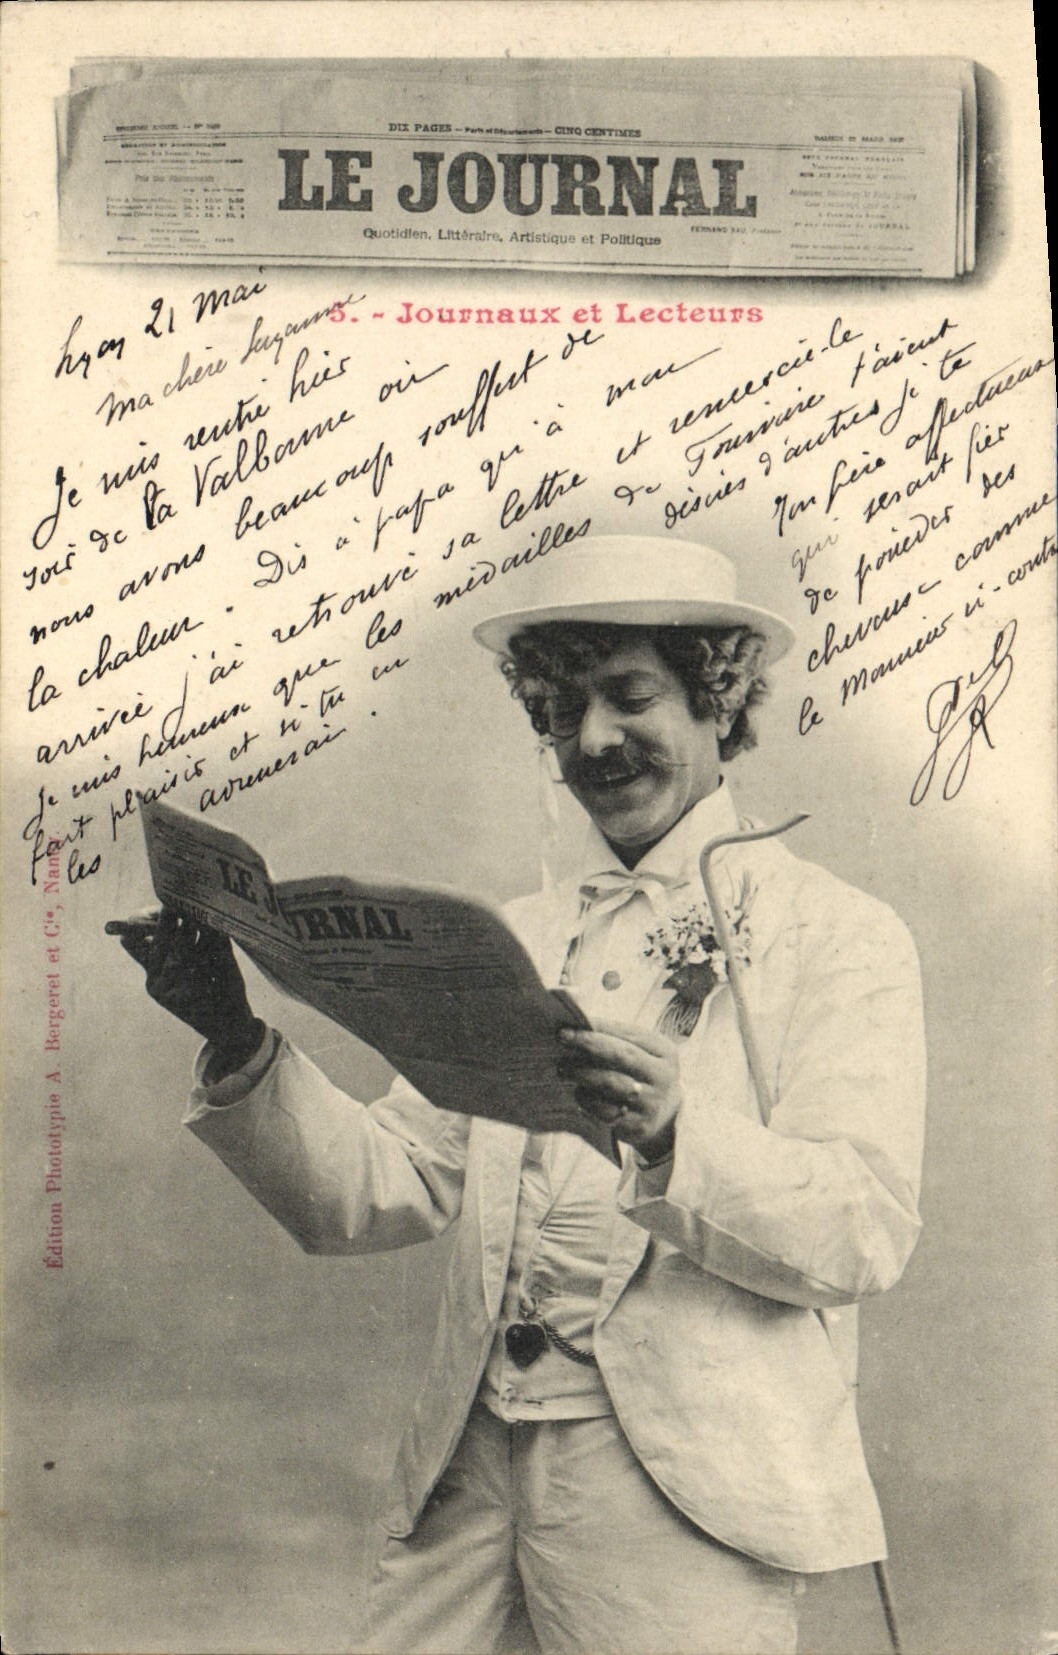 DIX PAGES — Paris et Départements — CINQ CENTIMES
LE JOURNAL
Quotidien, Littéraire, Artistique et Politique
FERNAND XAU,
5. - Journaux et Lecteurs
Lyon 21 Mai
Ma chère Suzanne
Je suis rentré hier
soir de la Valbonne où
nous avons beaucoup souffert de
la chaleur. Dis à papa qu'à mon
arrivée j'ai retrouvé sa lettre et remercie-le
Je suis heureux que les médailles de Fourvière t'aient
fait plaisir et si tu en désires d'autres je te
les amenerai.
Ton frère affectueux
qui serait fier
de posséder des
cheveux comme
le Monsieur ci-contre
LE JOURNAL
Édition Phototypie A. Bergeret et Cie, Nancy